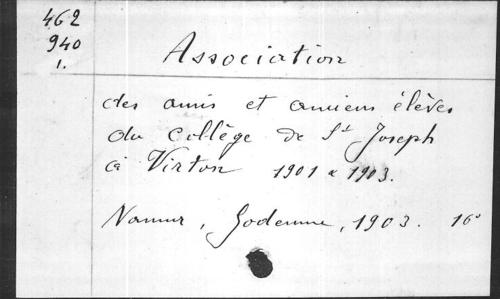 462
940
1.
Association
des amis et anciens élèves
du collège de St Joseph
à Virton 1901 à 1903.
Namur, Godenne, 1903. 16°